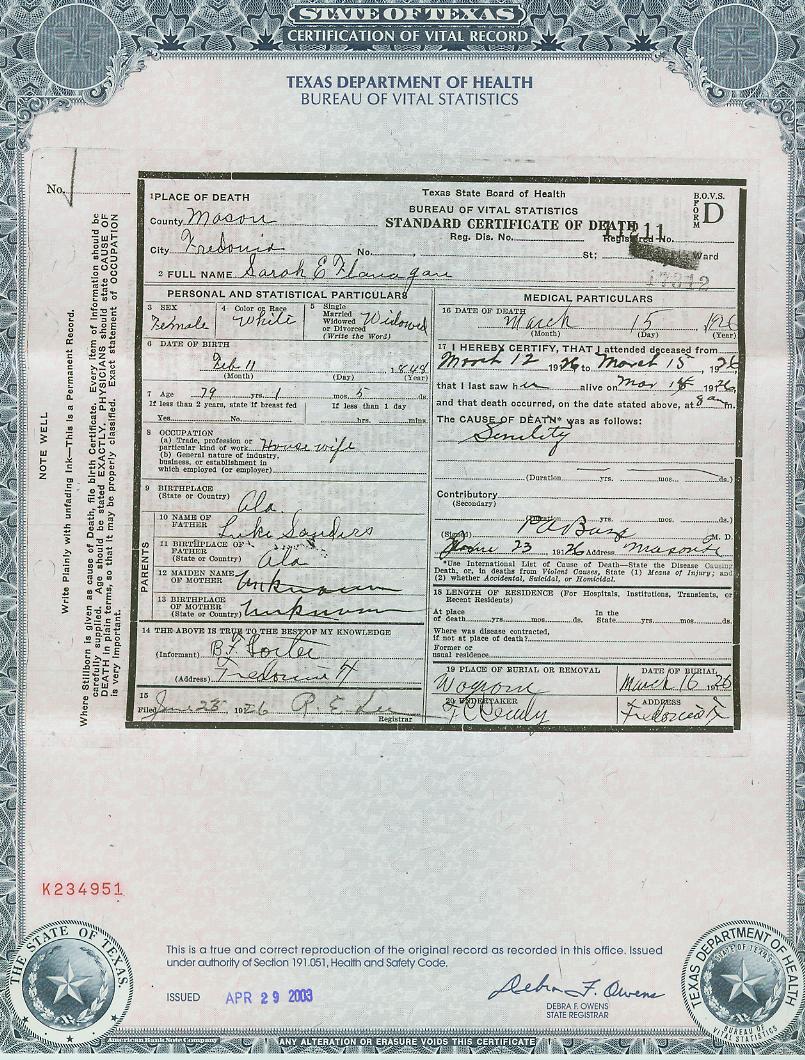 STATE OF TEXAS
CERTIFICATION OF VITAL RECORD
TEXAS DEPARTMENT OF HEALTH
BUREAU OF VITAL STATISTICS
No.
NOTE WELL
Write Plainly with unfading Ink—This is a Permanent Record.
Where Stillborn is given as cause of Death, file birth Certificate. Every item of Information should be
carefully supplied. Age should be stated EXACTLY. PHYSICIANS should state CAUSE OF
DEATH in plain terms, so that it may be properly classified. Exact statement of OCCUPATION
is very important.
1 PLACE OF DEATH
County Mason
City Fredonia No.
Texas State Board of Health
BUREAU OF VITAL STATISTICS
STANDARD CERTIFICATE OF DEATH
B.O.V.S.
FORM D
Reg. Dis. No. Registered No. 211
St; Ward
2 FULL NAME Sarah E Flanagan
17312
PERSONAL AND STATISTICAL PARTICULARS
3 SEX
Female
4 Color or Race
White
5 Single
Married
Widowed
or Divorced
(Write the Word)
Widowed
6 DATE OF BIRTH
Feb 11 1848
(Month) (Day) (Year)
7 Age 79 yrs. 1 mos. 5 ds.
If less than 2 years, state if breast fed If less than 1 day
Yes No. hrs. mins.
8 OCCUPATION
(a) Trade, profession or
particular kind of work House wife
(b) General nature of industry,
business, or establishment in
which employed (or employer)
9 BIRTHPLACE
(State or Country) Ala.
PARENTS
10 NAME OF
FATHER Luke Sanders
11 BIRTHPLACE OF
FATHER
(State or Country) Ala
12 MAIDEN NAME
OF MOTHER Unknown
13 BIRTHPLACE
OF MOTHER
(State or Country) Unknown
14 THE ABOVE IS TRUE TO THE BEST OF MY KNOWLEDGE
(Informant) B.F.
(Address) Fredonia
15
Filed June 23 1926 R. E. Lee
Registrar
MEDICAL PARTICULARS
16 DATE OF DEATH
March 15 1926
(Month) (Day) (Year)
17 I HEREBY CERTIFY, THAT I attended deceased from
March 12 1926 to March 15, 1926
that I last saw her alive on Mar 1926,
and that death occurred, on the date stated above, at 8 am.
The CAUSE OF DEATH* was as follows:
Senility
(Duration yrs. mos. ds.)
Contributory
(Secondary)
(Duration yrs. mos. ds.)
(Signed) M. D.
June 23 1926 Address Mason
*Use International List of Cause of Death—State the Disease Causing
Death, or, in deaths from Violent Causes, State (1) Means of Injury; and
(2) whether Accidental, Suicidal, or Homicidal.
18 LENGTH OF RESIDENCE (For Hospitals, Institutions, Transients, or
Recent Residents)
At place In the
of death yrs. mos. ds. State yrs. mos. ds.
Where was disease contracted,
if not at place of death?
Former or
usual residence
19 PLACE OF BURIAL OR REMOVAL
DATE OF BURIAL
March 16 1926
20 UNDERTAKER
ADDRESS
Fredonia
K234951
This is a true and correct reproduction of the original record as recorded in this office. Issued
under authority of Section 191.051, Health and Safety Code.
ISSUED APR 29 2003
Debra F. Owens
DEBRA F. OWENS
STATE REGISTRAR
THE STATE OF TEXAS
TEXAS DEPARTMENT OF HEALTH
STATE OF TEXAS
BUREAU OF VITAL STATISTICS
American Bank Note Company
ANY ALTERATION OR ERASURE VOIDS THIS CERTIFICATE